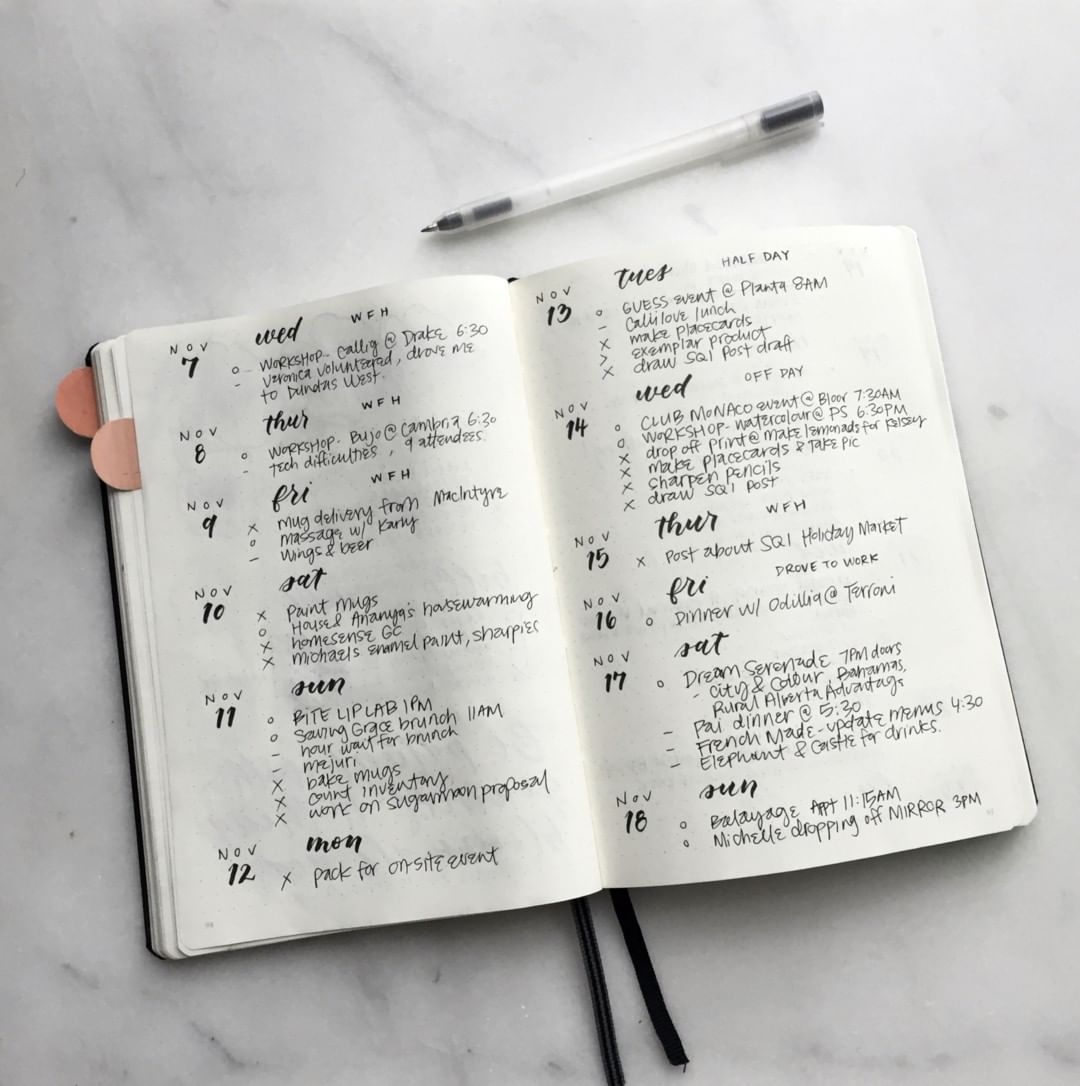 NOV 7 wed WFH
o WORKSHOP- Callig @ Drake 6:30
– Veronica volunteered, drove me
to Dundas West.
NOV 8 thur WFH
o WORKSHOP- Bujo @ Cambria 6:30
– tech difficulties, 9 attendees.
NOV 9 fri WFH
x mug delivery from MacIntyre
o massage w/ Karly
– Wings & beer
NOV 10 sat
x Paint mugs
o House of Ananya's housewarming
x homesense GC
x michaels enamel paint, sharpies
NOV 11 sun
o BITE LIP LAB 1PM
o Saving Grace brunch 11AM
– hour wait for brunch
– mejuri
x bake mugs
x count inventory
x work on sugarmoon proposal
NOV 12 mon
x pack for on-site event
NOV 13 tues HALF DAY
o GUESS event @ Planta 8AM
– Callilove lunch
x make placecards
> exemplar product
x draw SQ1 Post draft
NOV 14 wed OFF DAY
o CLUB MONACO event @ Bloor 7:30AM
o WORKSHOP- watercolour @ PS 6:30PM
x drop off print @ make lemonade for Kelsey
x make placecards & take pic
x sharpen pencils
x draw SQ1 Post
NOV 15 thur WFH
x Post about SQ1 Holiday Market
NOV 16 fri DROVE TO WORK
o Dinner w/ Odillia @ Terroni
NOV 17 sat
o Dream Serenade 7PM doors
– City & Colour, Bahamas,
Rural Alberta Advantage
– Pai dinner @ 5:30
– French Made - update menus 4:30
– Elephant & Castle for drinks.
NOV 18 sun
o Balayage Appt 11:15AM
o Michelle dropping off MIRROR 3PM